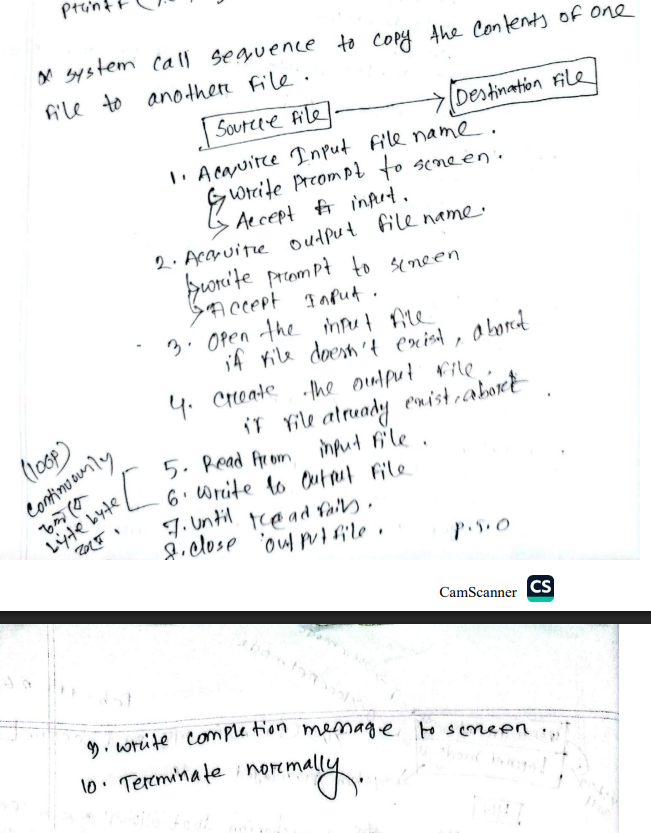 printf (
* system call sequence to copy the contents of one
file to another file.
Source file → Destination file
1. Acquire Input file name.
↳ write Prompt to screen.
↳ Accept input.
2. Acquire output file name.
↳ write prompt to screen
↳ Accept Input.
3. Open the input file
if file doesn't exist, abort
4. Create the output file.
if file already exist, abort.
(loop)
continuously
byte byte
5. Read from input file.
6. write to output file
7. until read fails.
8. close output file.
P.T.O
CamScanner CS
9. write completion message to screen.
10. Terminate normally.